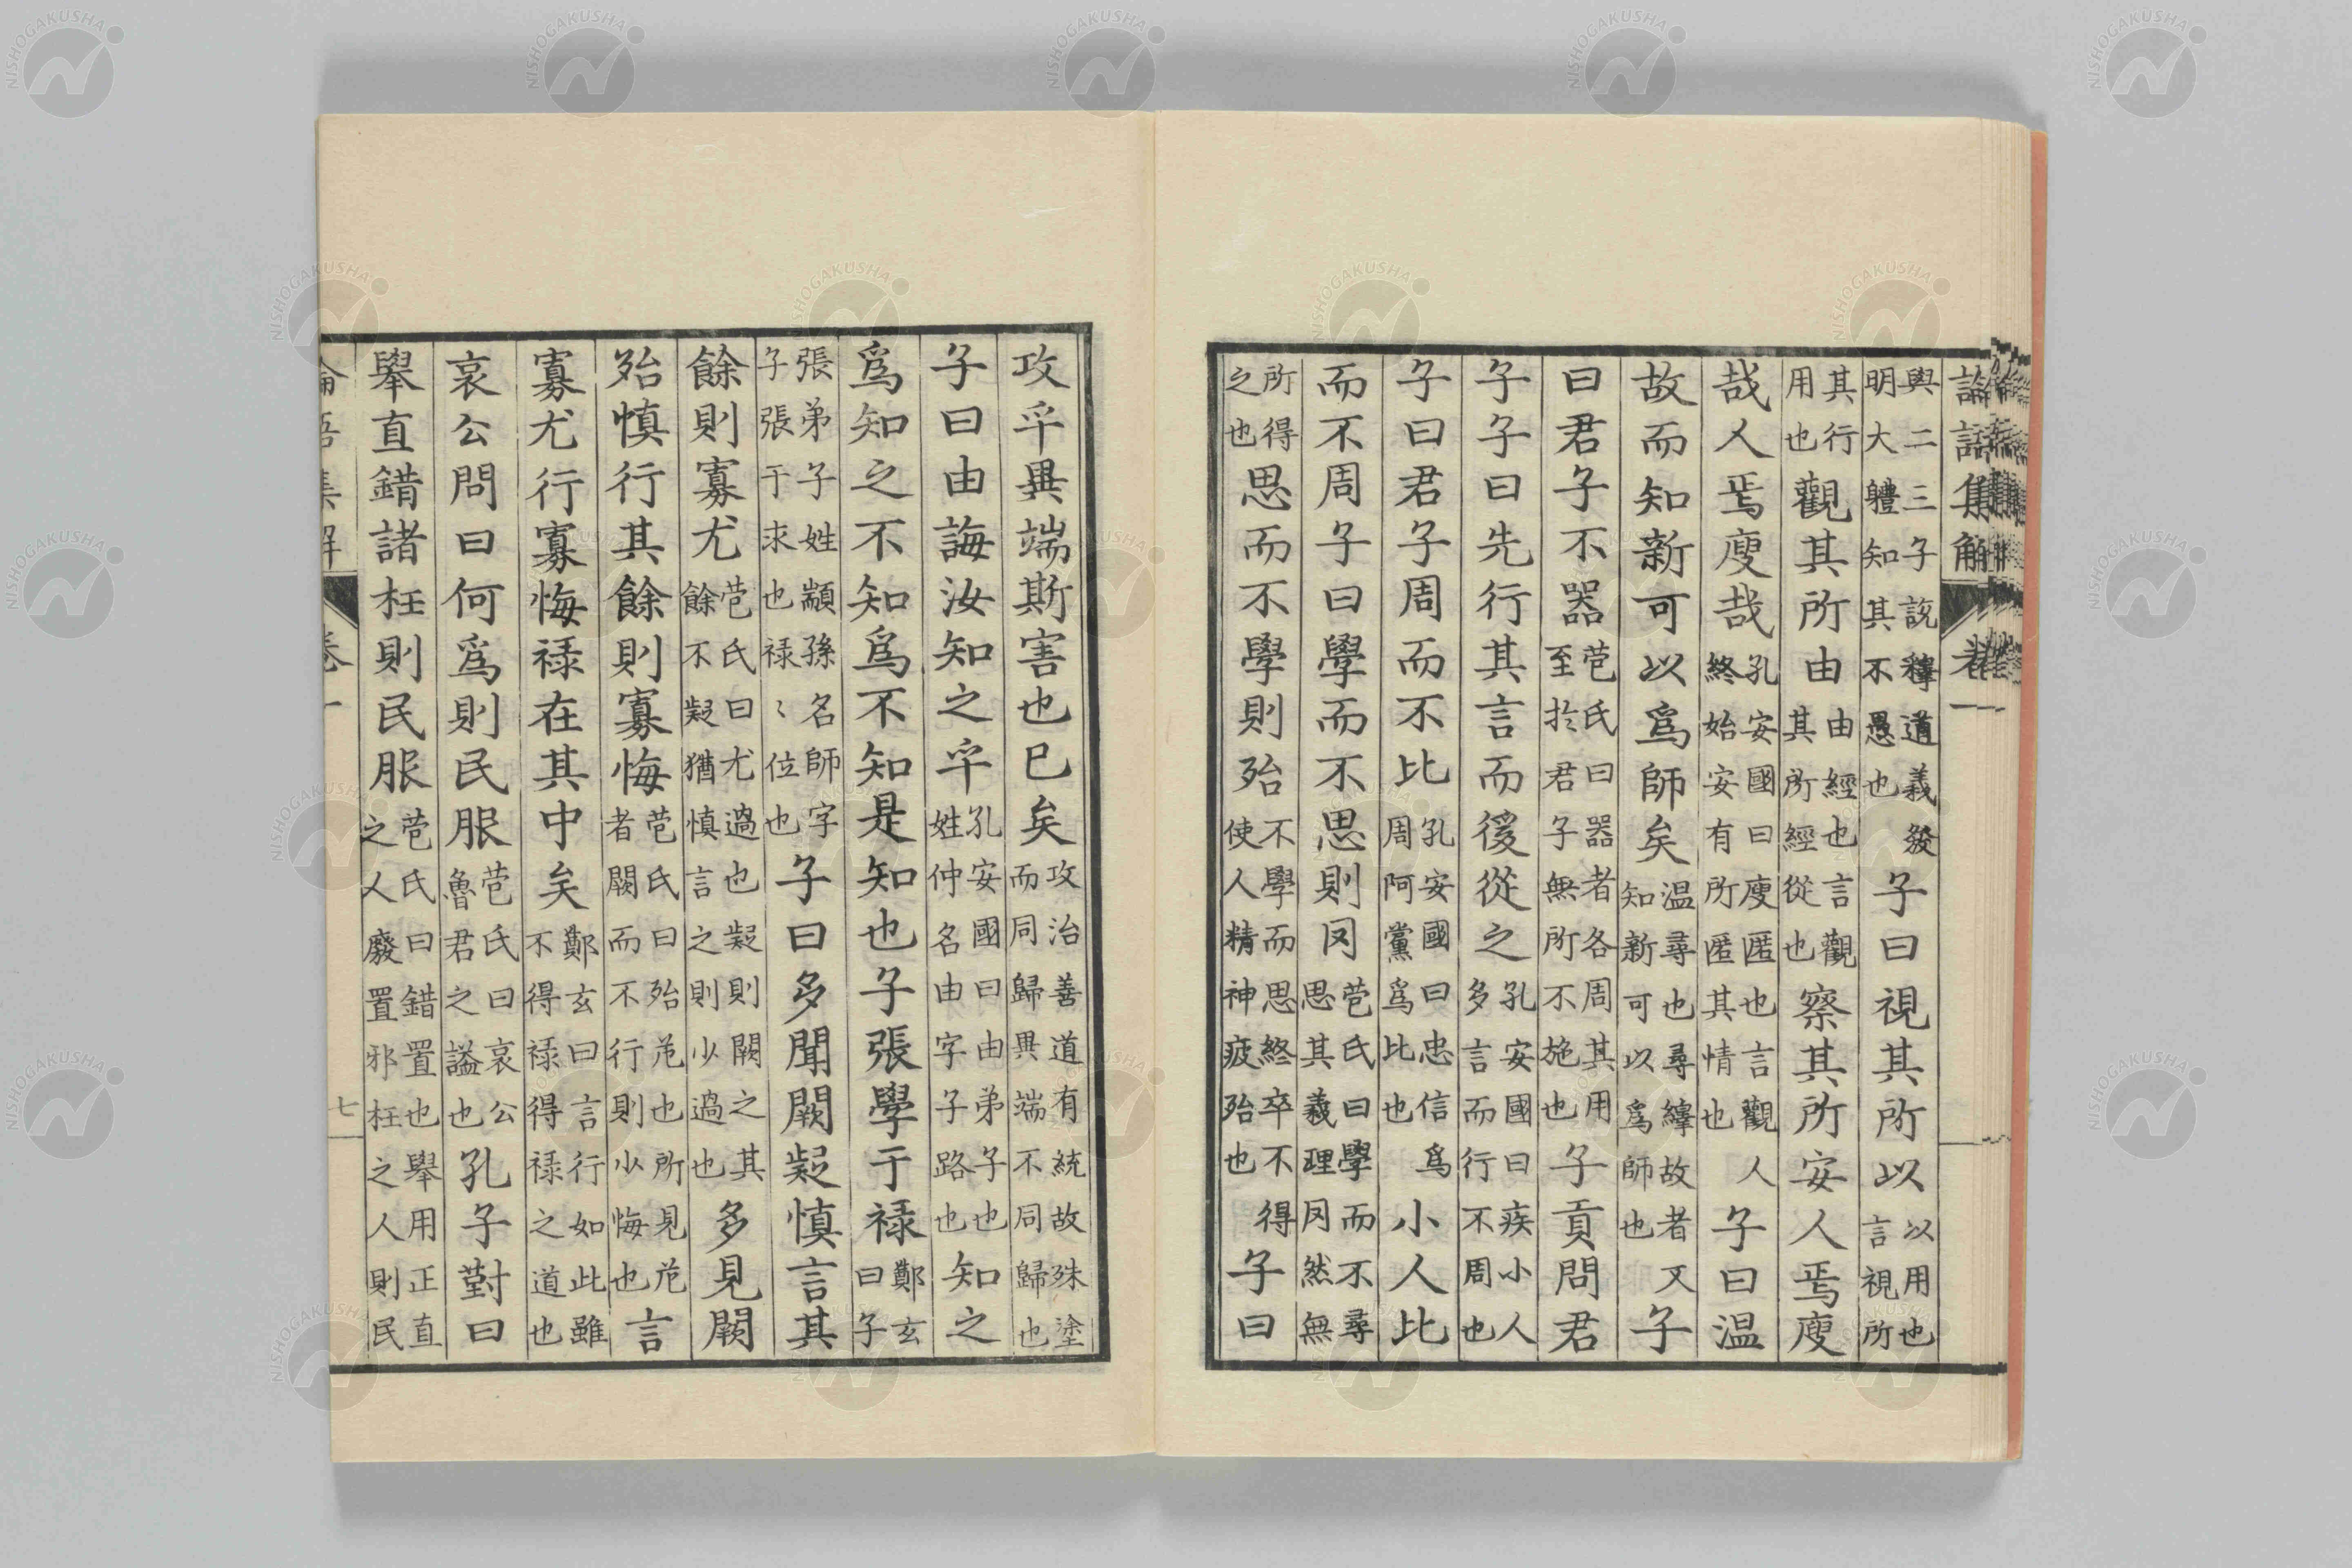 論語集解 卷一
與二三子說釋道義發明大軆知其不愚也子曰視其所以以用也言視所
其行用也觀其所由由經也言觀其所經從也察其所安人焉廋
哉人焉廋哉孔安國曰廋匿也言觀人終始安有所匿其情也子曰温
故而知新可以爲師矣温尋也尋繹故者又知新可以爲師也子
曰君子不器苞氏曰器者各周其用至於君子無所不施也子貢問君
子子曰先行其言而後從之孔安國曰疾小人多言而行不周也
子曰君子周而不比孔安國曰忠信爲周阿黨爲比也小人比
而不周子曰學而不思則罔苞氏曰學而不尋思其義理罔然無
所得之也思而不學則殆不學而思終卒不得使人精神疲殆也子曰
攻乎異端斯害也已矣攻治善道有統故殊塗而同歸異端不同歸也
子曰由誨汝知之乎孔安國曰由弟子也姓仲名由字子路也知之
爲知之不知爲不知是知也子張學于禄鄭玄曰子
張弟子姓顓孫名師字子張于求也禄〻位也子曰多聞闕疑慎言其
餘則寡尤苞氏曰尤過也疑則闕之其餘不疑猶慎言之則少過也多見闕
殆慎行其餘則寡悔苞氏曰殆危也所見危者闕而不行則少悔也言
寡尤行寡悔禄在其中矣鄭玄曰言行如此雖不得禄得禄之道也
哀公問曰何爲則民服苞氏曰哀公魯君之謚也孔子對曰
舉直錯諸枉則民服苞氏曰錯置也舉用正直之人廢置邪枉之人則民
論語集解 卷一 七
NISHOGAKUSHA